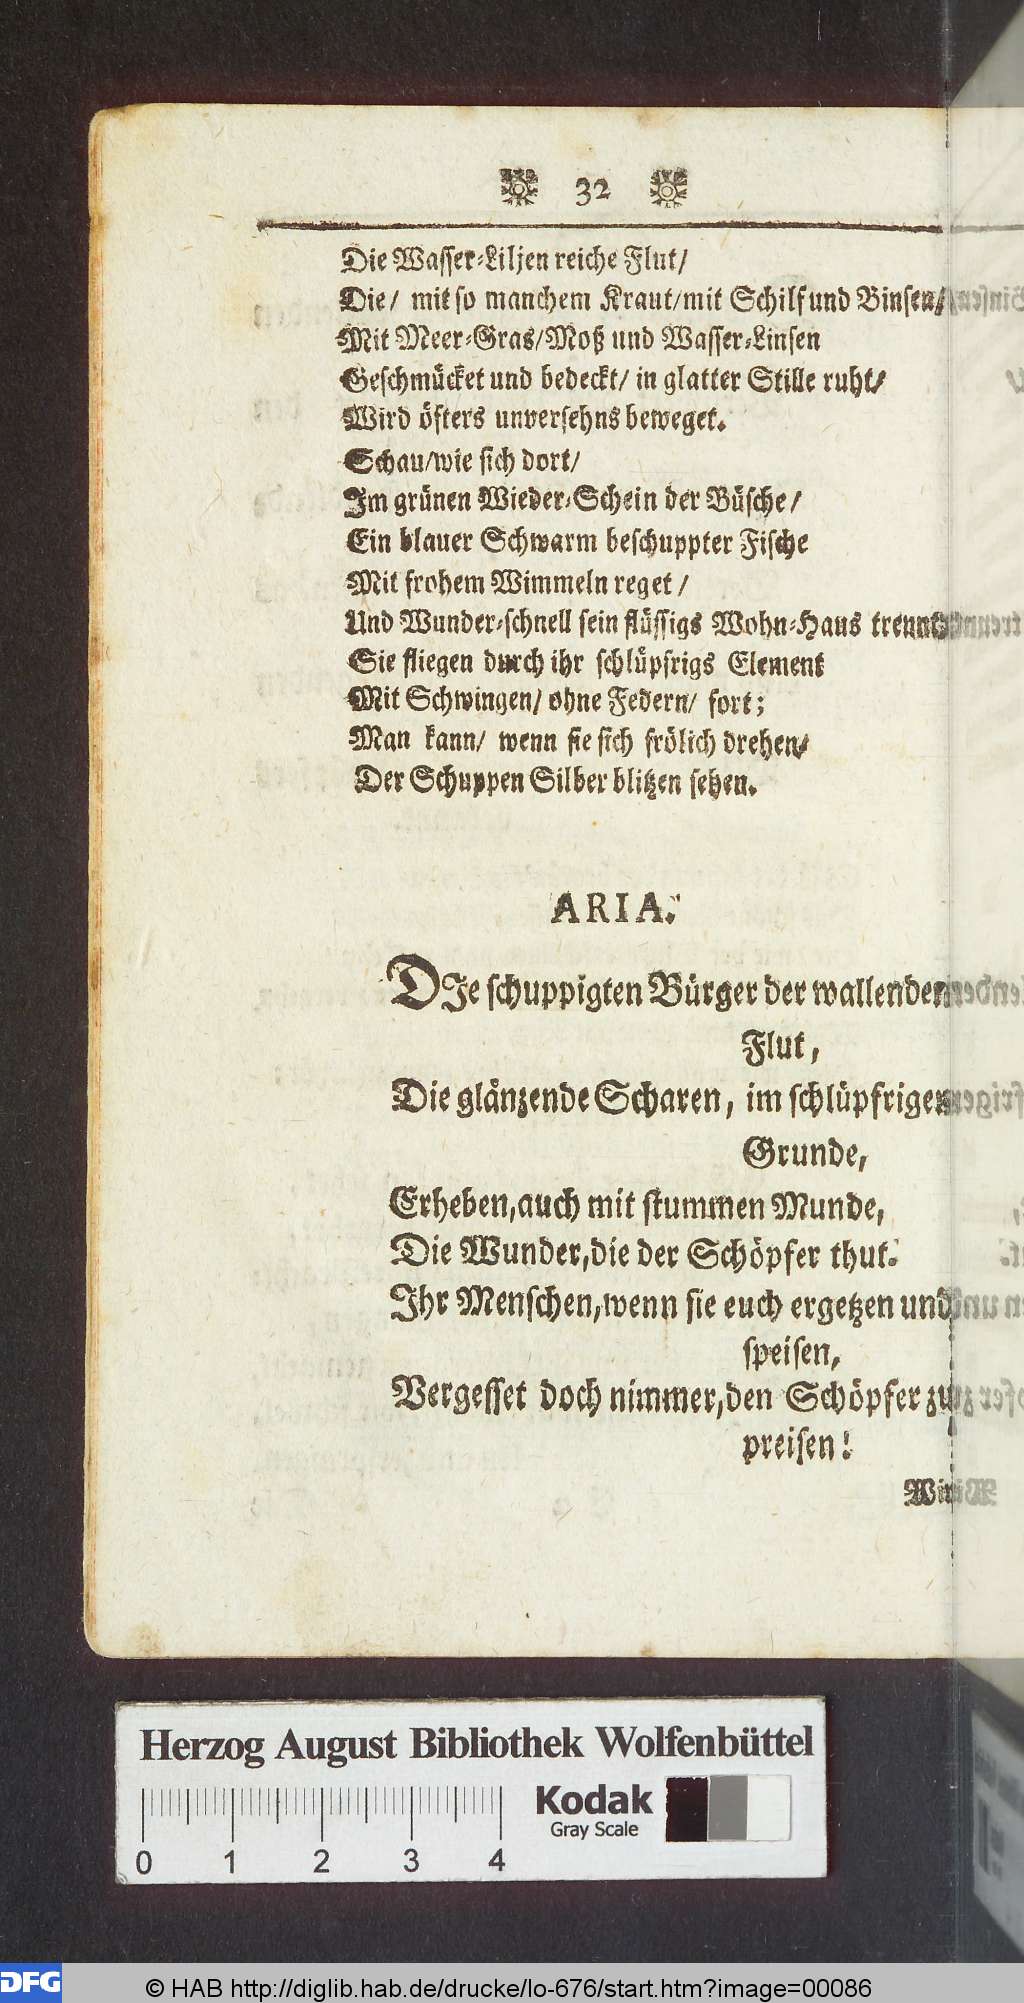 32
Die Wasser-Liljen reiche Flut/
Die/ mit so manchem Kraut/mit Schilf und Binsen/
Mit Meer-Gras/Moß und Wasser-Linsen
Geschmücket und bedeckt/ in glatter Stille ruht/
Wird öfters unversehns beweget.
Schau/wie sich dort/
Im grünen Wieder-Schein der Büsche/
Ein blauer Schwarm beschuppter Fische
Mit frohem Wimmeln reget/
Und Wunder-schnell sein flüssigs Wohn-Haus trennt
Sie fliegen durch ihr schlüpfrigs Element
Mit Schwingen/ ohne Federn/ fort;
Man kann/ wenn sie sich frölich drehen/
Der Schuppen Silber blitzen sehen.
ARIA.
DIe schuppigten Bürger der wallenden
Flut,
Die glänzende Scharen, im schlüpfrigen
Grunde,
Erheben, auch mit stummen Munde,
Die Wunder, die der Schöpfer thut.
Ihr Menschen, wenn sie euch ergetzen und
speisen,
Vergesset doch nimmer, den Schöpfer zu
preisen!
Herzog August Bibliothek Wolfenbüttel
Kodak
Gray Scale
0 1 2 3 4
DFG
© HAB http://diglib.hab.de/drucke/lo-676/start.htm?image=00086